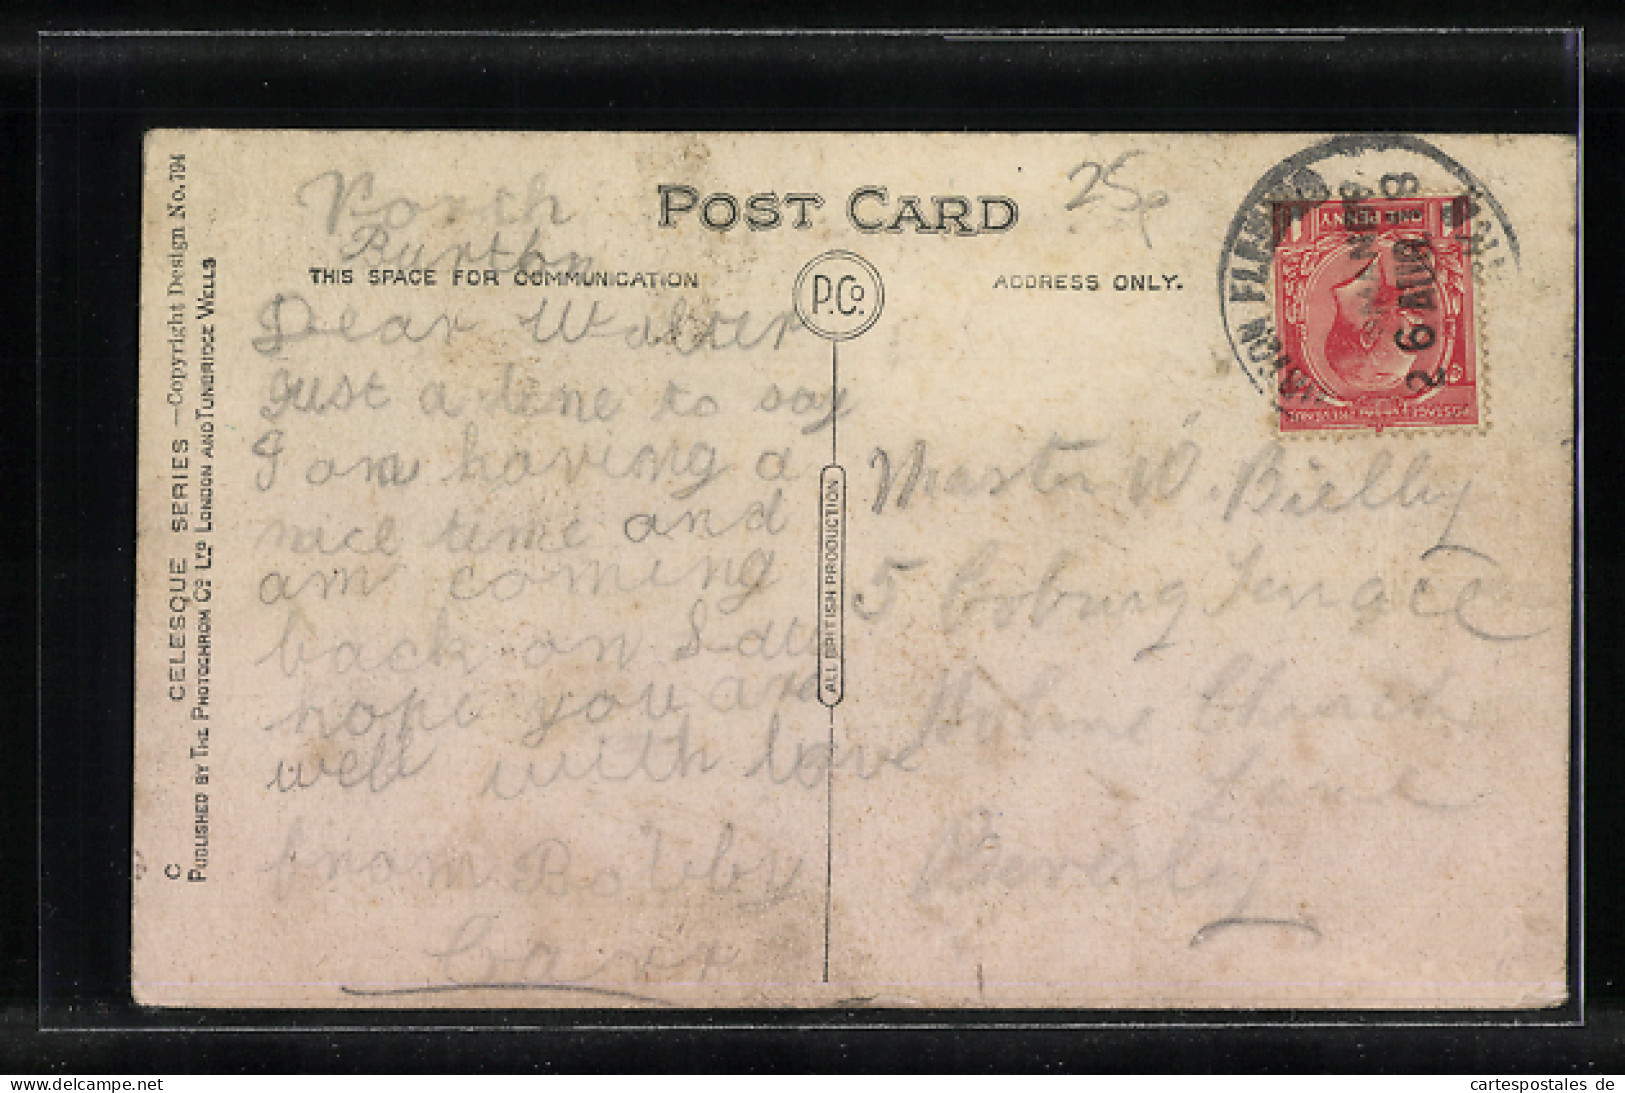 POST CARD
25c
THIS SPACE FOR COMMUNICATION
ADDRESS ONLY.
P.Co.
ALL BRITISH PRODUCTION
C CELESQUE SERIES —Copyright Design No. 794
PUBLISHED BY THE PHOTOCHROM CO LTD LONDON AND TUNBRIDGE WELLS
North
Burton
Dear Walter
just a line to say
I am having a
nice time and
am coming
back on Sat
hope you are
well with love
from Bobby
Carr
Master W. Bielby
5 Coburg Terrace
Holme Church
Lane
Beverley
ONE PENNY
26 AUG
delcampe.net
cartespostales de